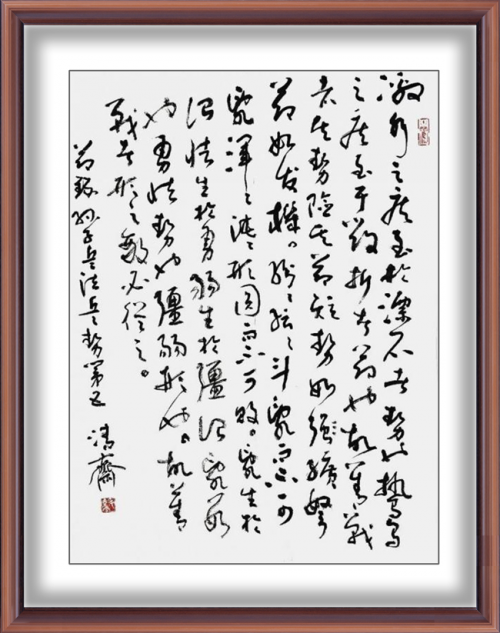 激水之疾至於漂石者勢也鷙鳥
之疾至于毀折者節也故善戰
者其勢險其節短勢如弩
節如發機。紛々紜々鬥亂而不可
亂渾々沌々形圓而不可敗。亂生於
治怯生於勇弱生於彊治亂數
也勇怯勢也彊弱形也。故善
戰者形之敵必從之。
節錄孫子兵法兵勢第五 清齋